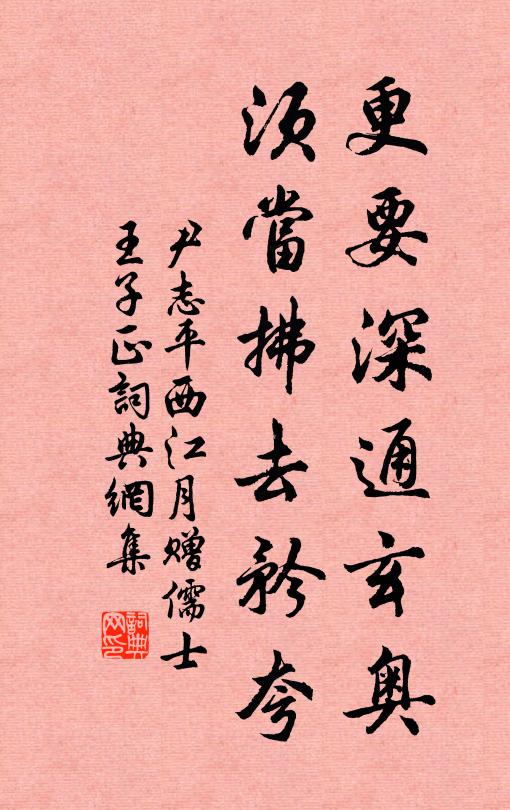 更要深通玄奥
須當拂去矜夸
尹志平西江月赠儒士
王子正詞典網集
詞典网印